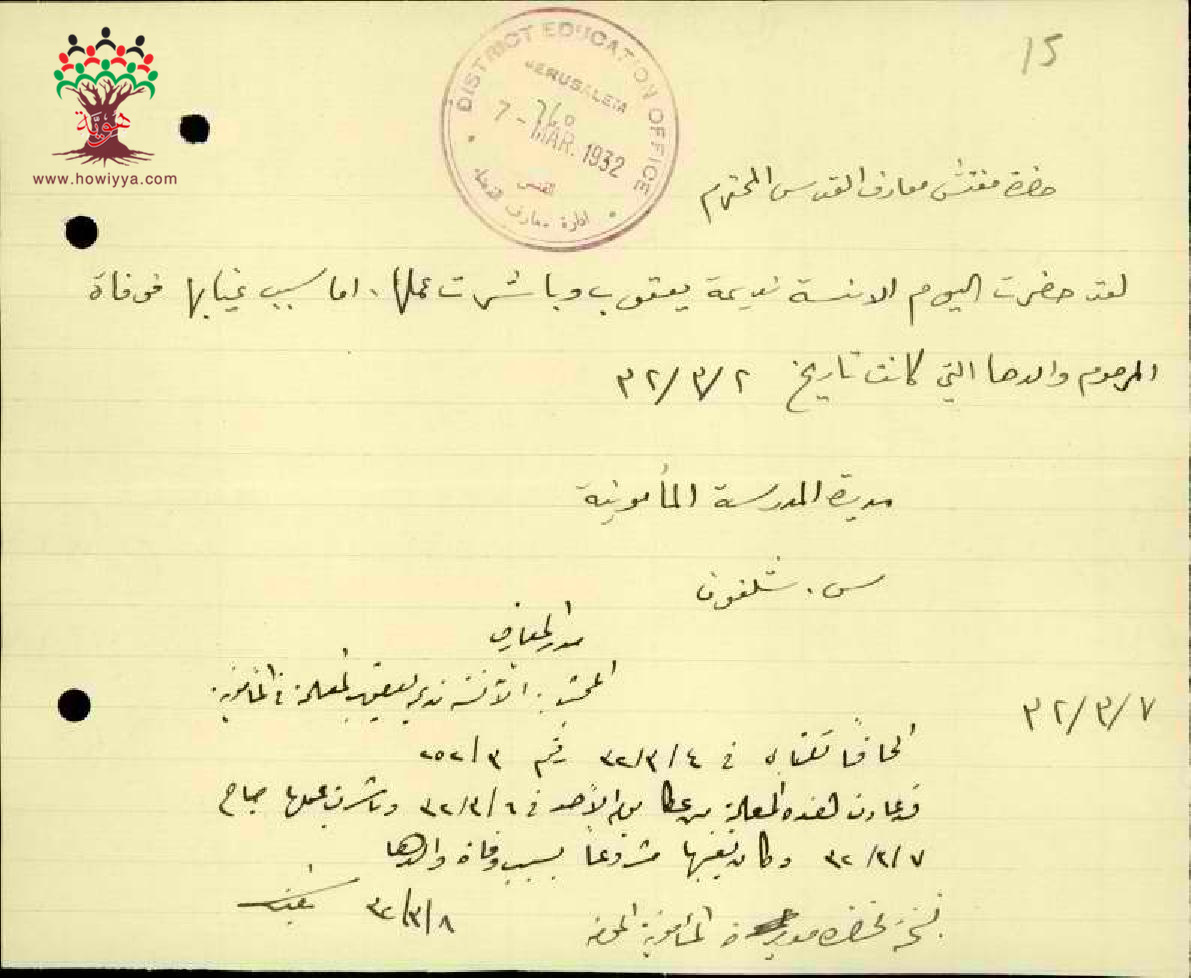 15
هويّة
www.howiyya.com
DISTRICT EDUCATION OFFICE
JERUSALEM
7 - MAR. 1932
القدس
ادارة معارف
حضرة مفتش معارف القدس المحترم
لقد حضرت اليوم الانسة نديمة يعقوب وباشرت عملها. اما سبب غيابها فوفاة
المرحوم والدها التي كانت تاريخ ٣٢/٣/٢
مديرة المدرسة المأمونية
س. شلفون
٣٢/٣/٧
مدير المعارف
الآنسة نديمة يعقوب المعلمة في المأمونية.
الحاقاً لكتابي في ٣٢/٣/٤ رقم ٢٥٢/٣
قد عادت هذه المعلمة من عكا يوم الأحد في ٣٢/٣/٦ وباشرت عملها صباح
٣٢/٣/٧ وكان تغيبها مشروعاً بسبب وفاة والدها
نسخة لحضرة مديرة المأمونية المحترمة
٣٢/٣/٨